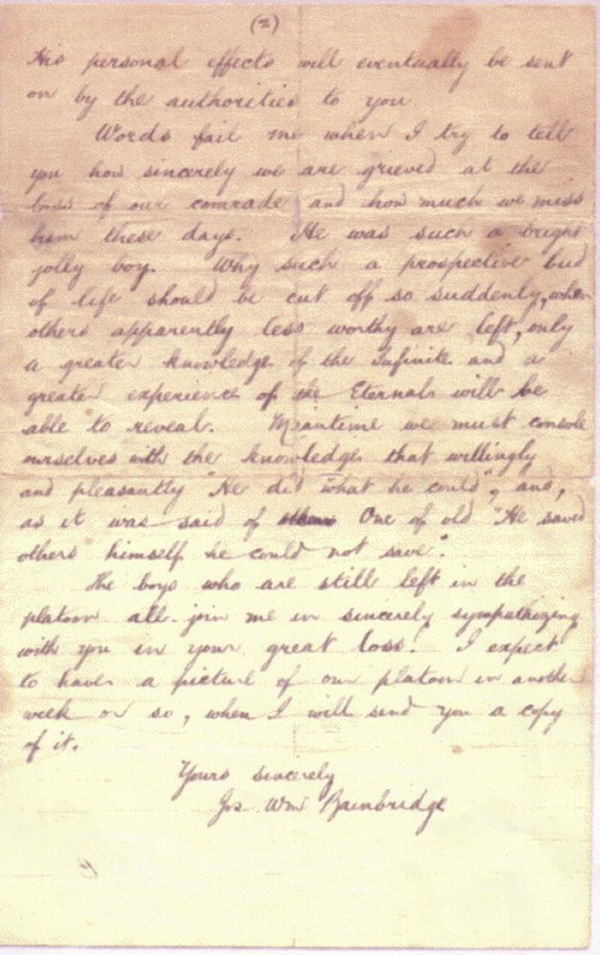 (2)
His personal effects will eventually be sent
on by the authorities to you
Words fail me when I try to tell
you how sincerely we are grieved at the
loss of our comrade and how much we miss
him these days. He was such a bright
jolly boy. Why such a prospective bud
of life should be cut off so suddenly, when
others apparently less worthy are left, only
a greater knowledge of the Infinite and a
greater experience of the Eternals will be
able to reveal. Meantime we must console
ourselves with the knowledge that willingly
and pleasantly "He did what he could", and,
as it was said of One of old "He saved
others himself he could not save".
The boys who are still left in the
platoon all join me in sincerely sympathizing
with you in your great loss. I expect
to have a picture of our platoon in another
week or so, when I will send you a copy
of it.
Yours sincerely
Jos. Wm Bainbridge